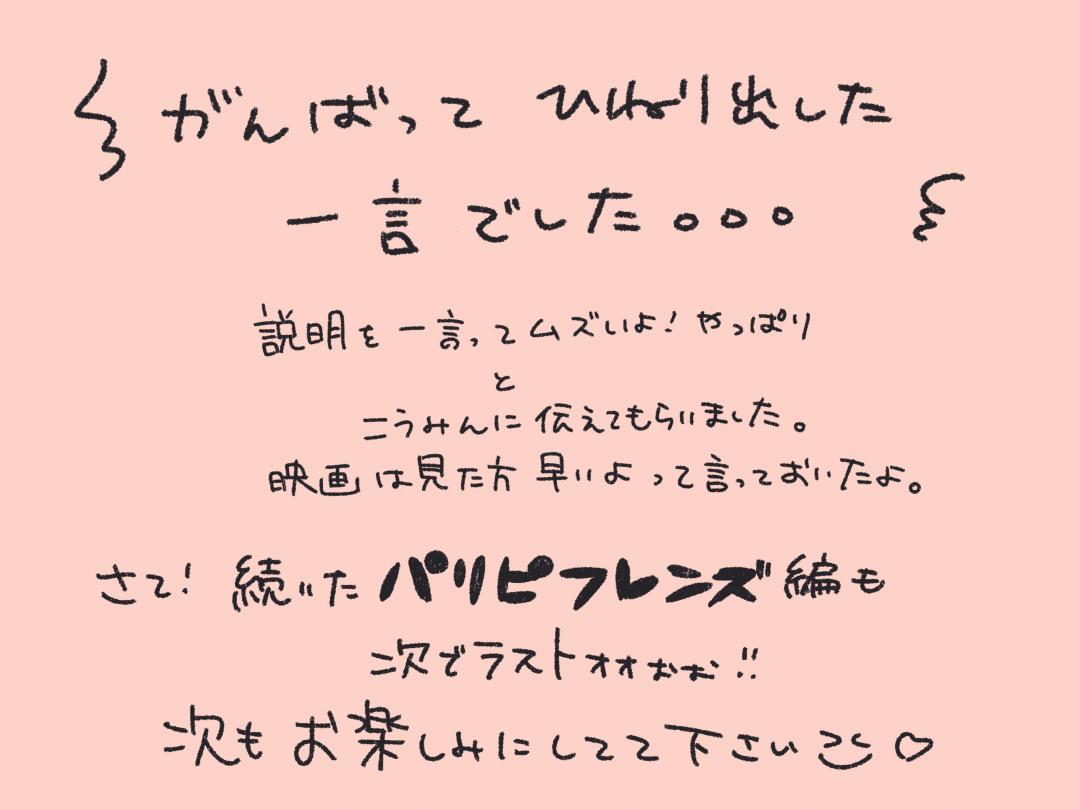 がんばって ひねり出した
一言でした。。。
説明を一言ってムズいよ!やっぱり
と
こうみんに伝えてもらいました。
映画は見た方早いよって言っておいたよ。
さて!続いたパリピフレンズ編も
次でラストオオおお!!
次もお楽しみにしてて下さい♡